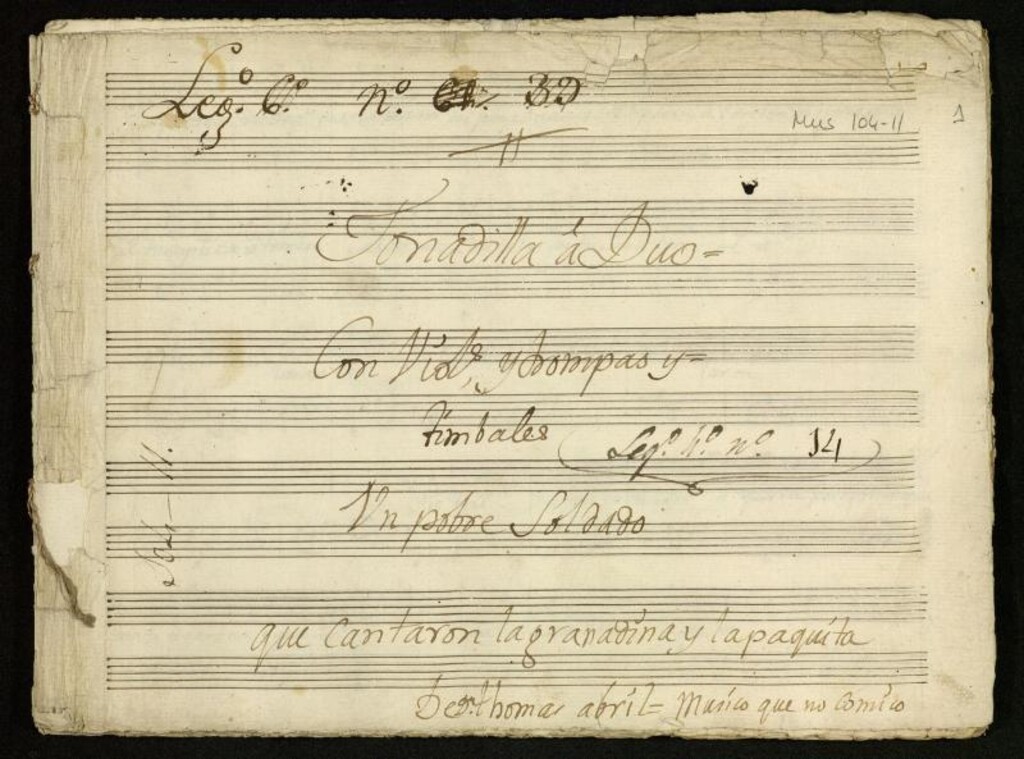 Leg.º 6.º nº. 39
Mus 104-11
1
Tonadilla â Duo=
Con Viol.s y trompas y=
timbales
Leg.º 4.º nº. 14
Un pobre Soldado
que Cantaron la granadina y la paquita
De Dn. thomas abril= Musico que no Comico